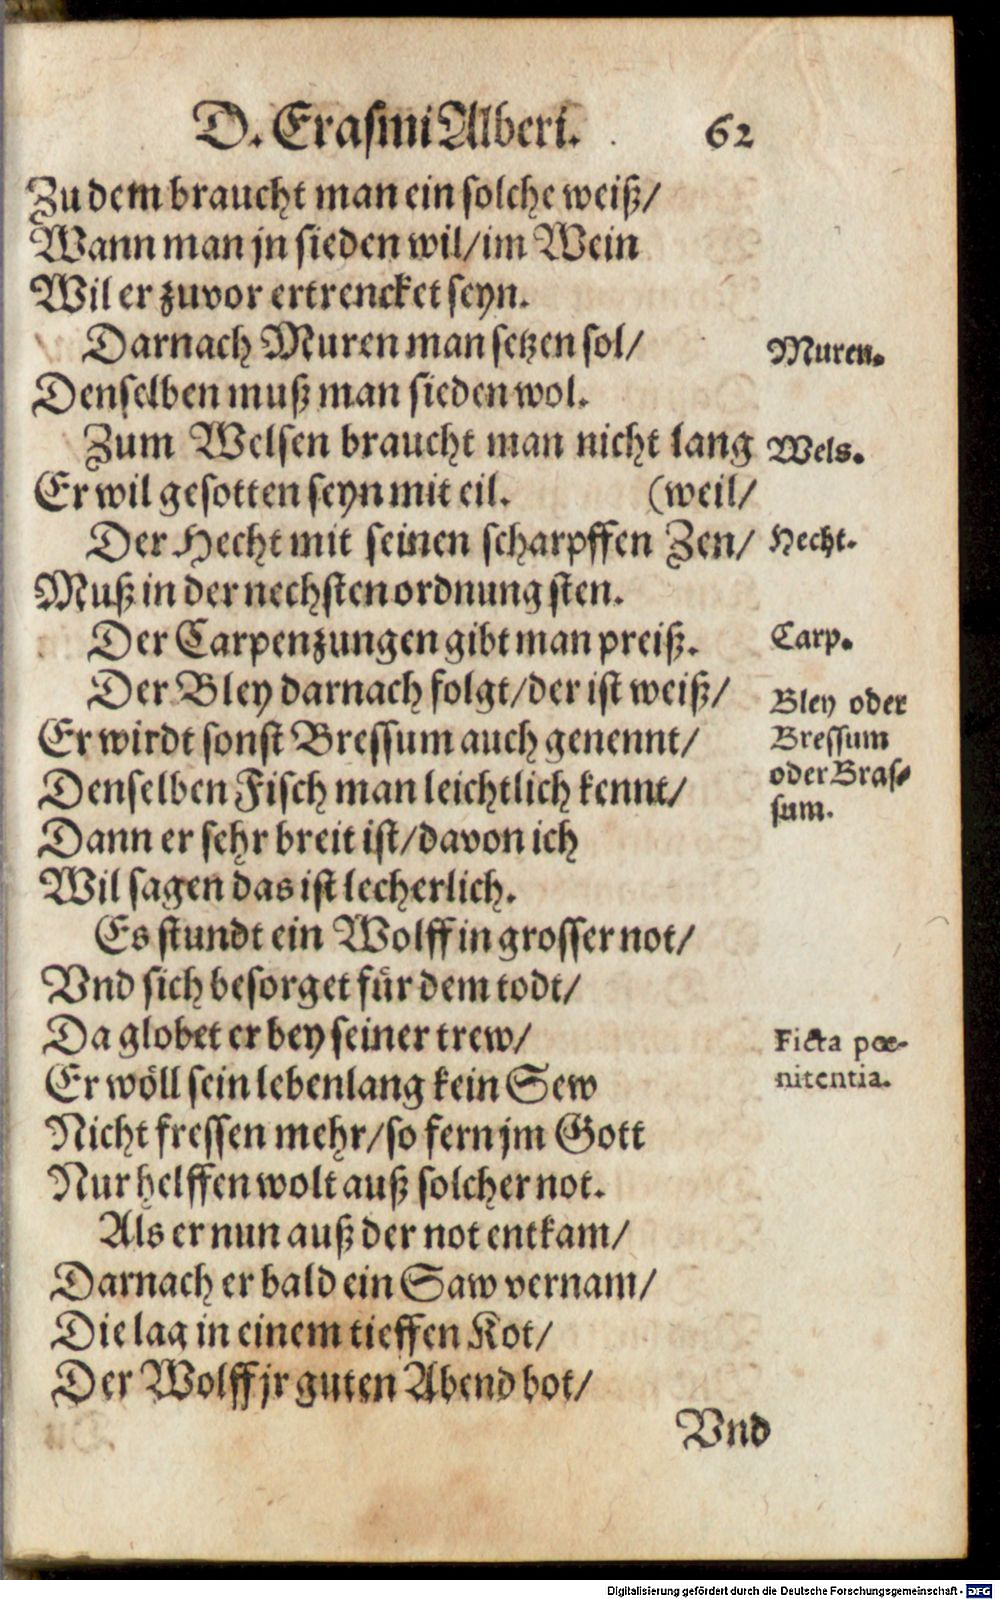 D. Erasmi Alberi. 62
Zu dem braucht man ein solche weiß/
Wann man jn sieden wil/im Wein
Wil er zuvor ertrencket seyn.
Darnach Muren man setzen sol/
Muren.
Denselben muß man sieden wol.
Zum Welsen braucht man nicht lang
Wels.
Er wil gesotten seyn mit eil. (weil/
Der Hecht mit seinen scharpffen Zen/
Hecht.
Muß in der nechsten ordnung sten.
Der Carpenzungen gibt man preiß.
Carp.
Der Bley darnach folgt/der ist weiß/
Bley oder
Er wirdt sonst Bressum auch genennt/
Bressum
Denselben Fisch man leichtlich kennt/
oder Bras-
sum.
Dann er sehr breit ist/davon ich
Wil sagen das ist lecherlich.
Es stundt ein Wolff in grosser not/
Vnd sich besorget für dem todt/
Da globet er bey seiner trew/
Ficta pœ-
Er wöll sein lebenlang kein Sew
nitentia.
Nicht fressen mehr/so fern jm Gott
Nur helffen wolt auß solcher not.
Als er nun auß der not entkam/
Darnach er bald ein Saw vernam/
Die lag in einem tieffen Kot/
Der Wolff jr guten Abend bot/
Vnd
Digitalisierung gefördert durch die Deutsche Forschungsgemeinschaft - DFG